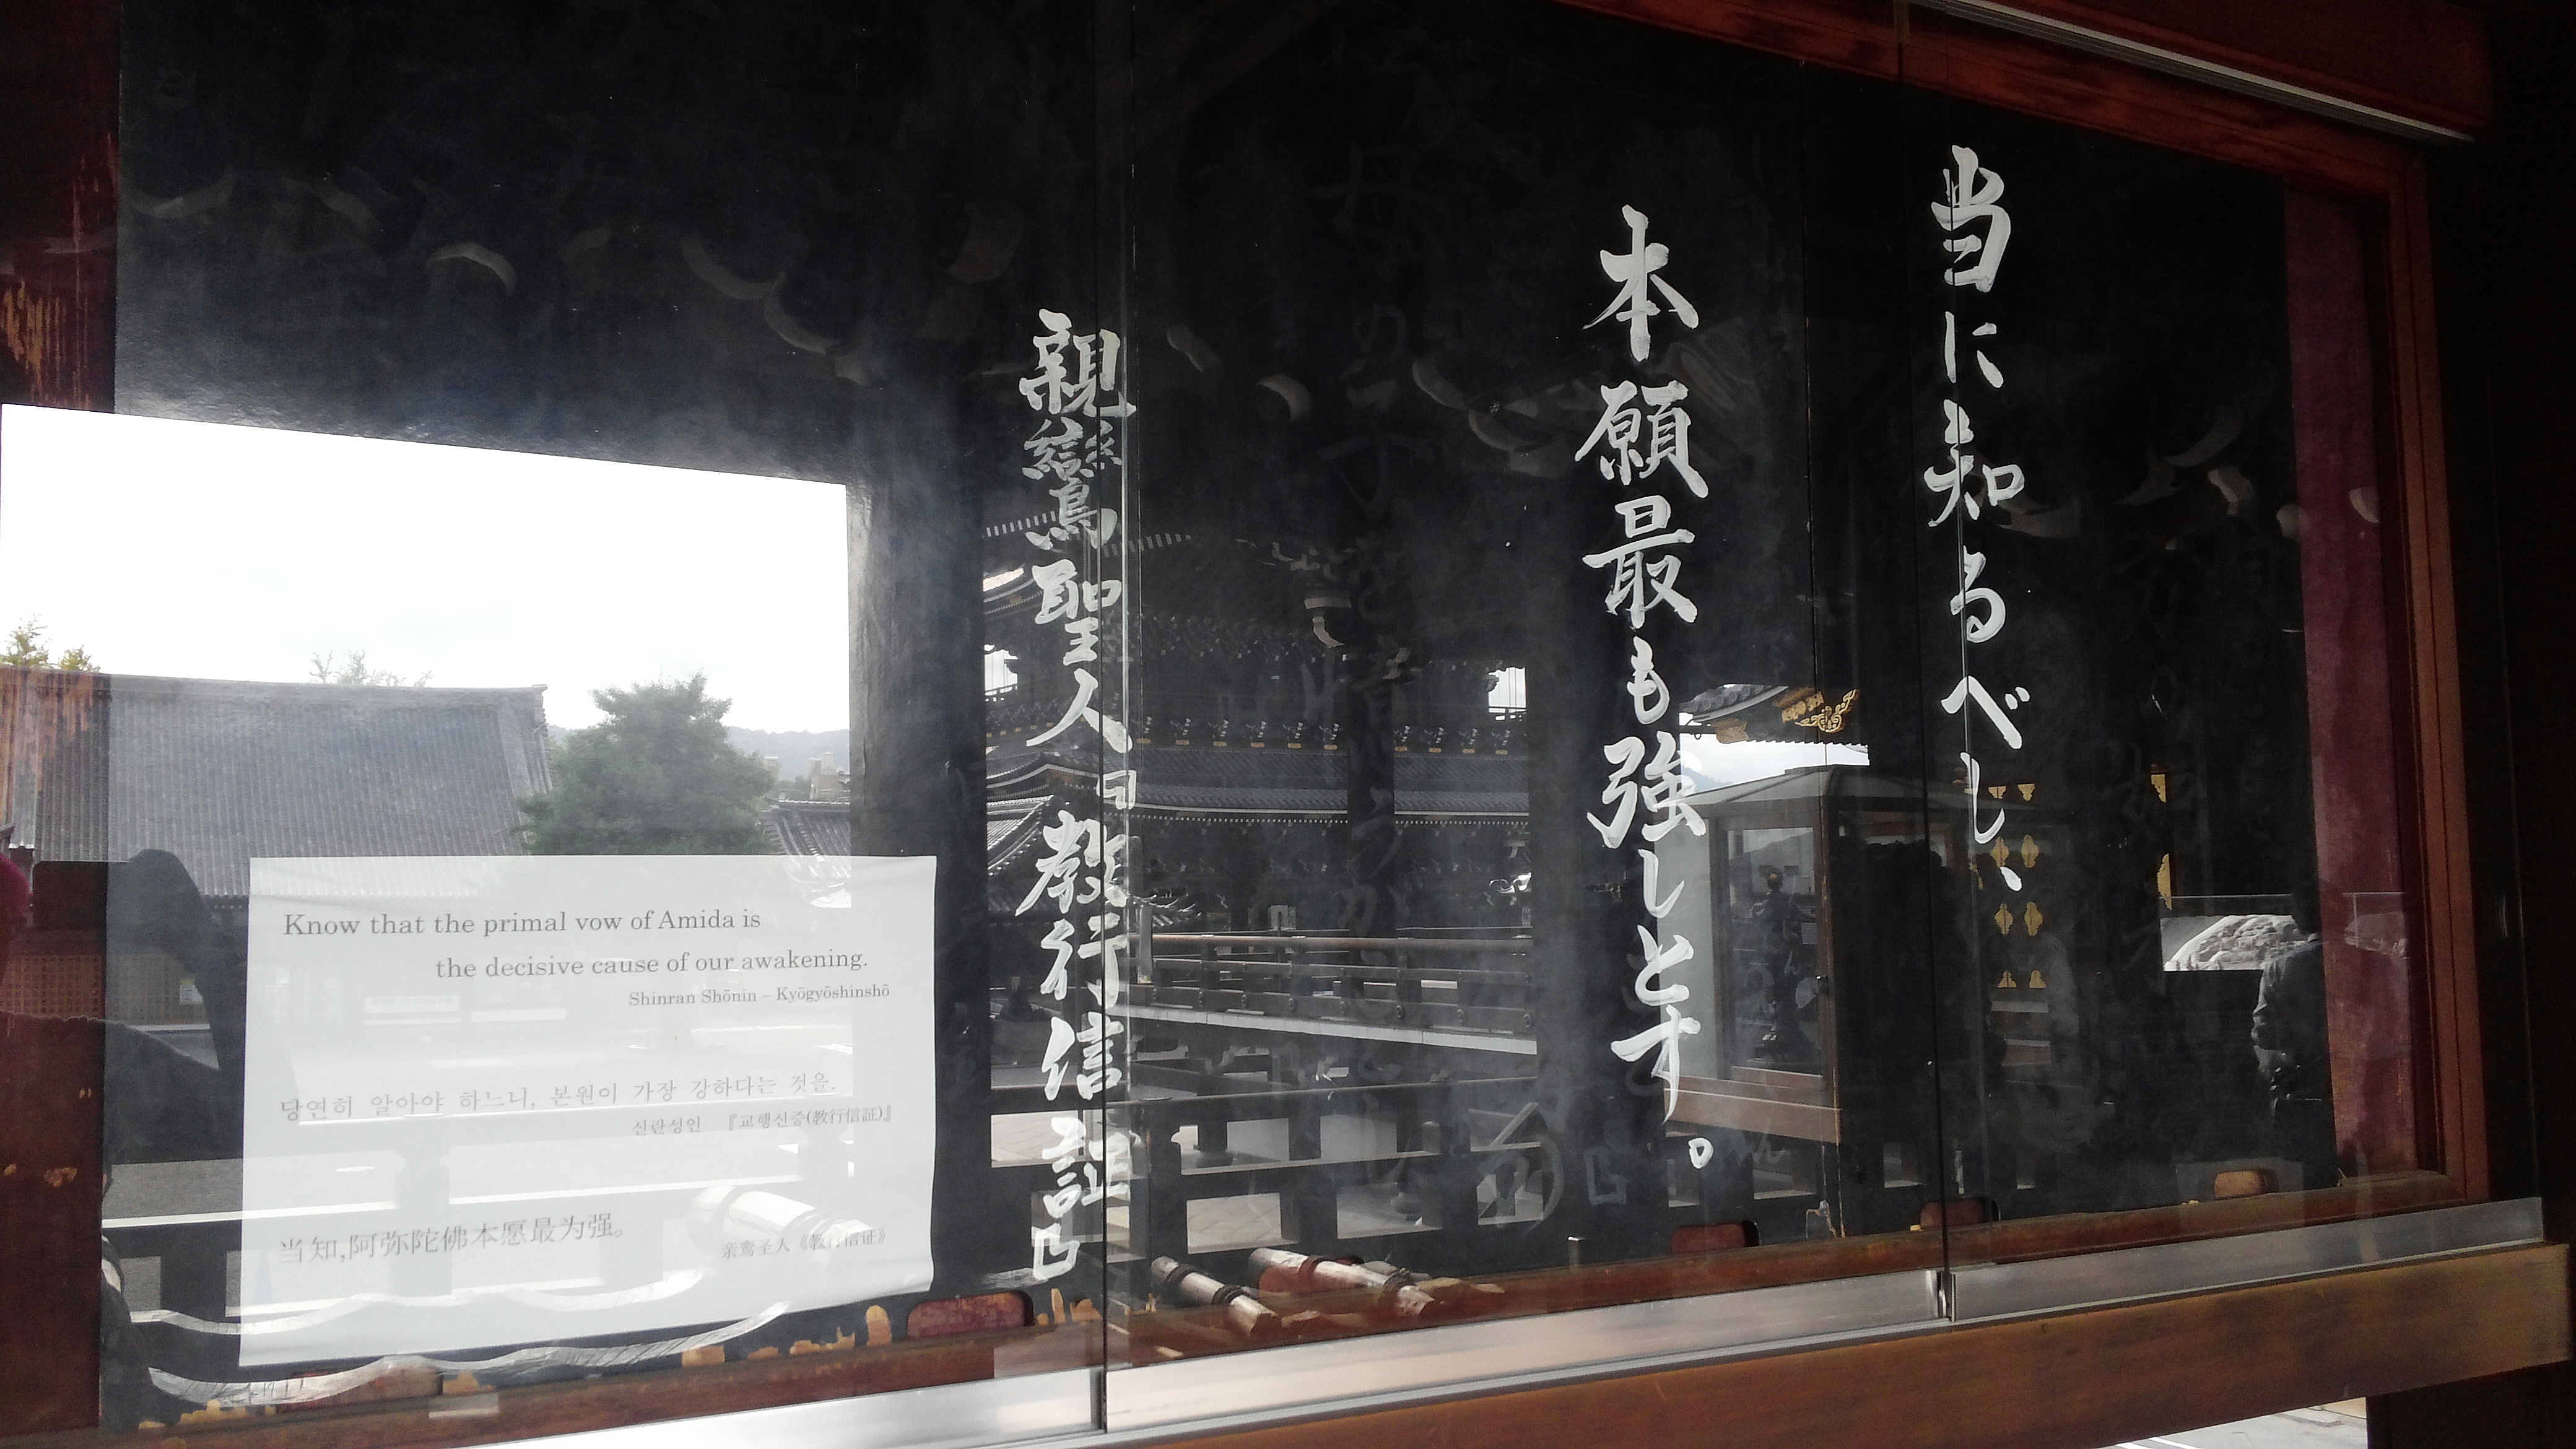 当に知るべし、
本願最も強しとす。
親鸞聖人 曰 教行信証
Know that the primal vow of Amida is
the decisive cause of our awakening.
Shinran Shōnin – Kyōgyōshinshō
당연히 알아야 하느니, 본원이 가장 강하다는 것을.
신란성인 『교행신증(教行信証)』
当知,阿弥陀佛本愿最为强。
亲鸾圣人《教行信证》